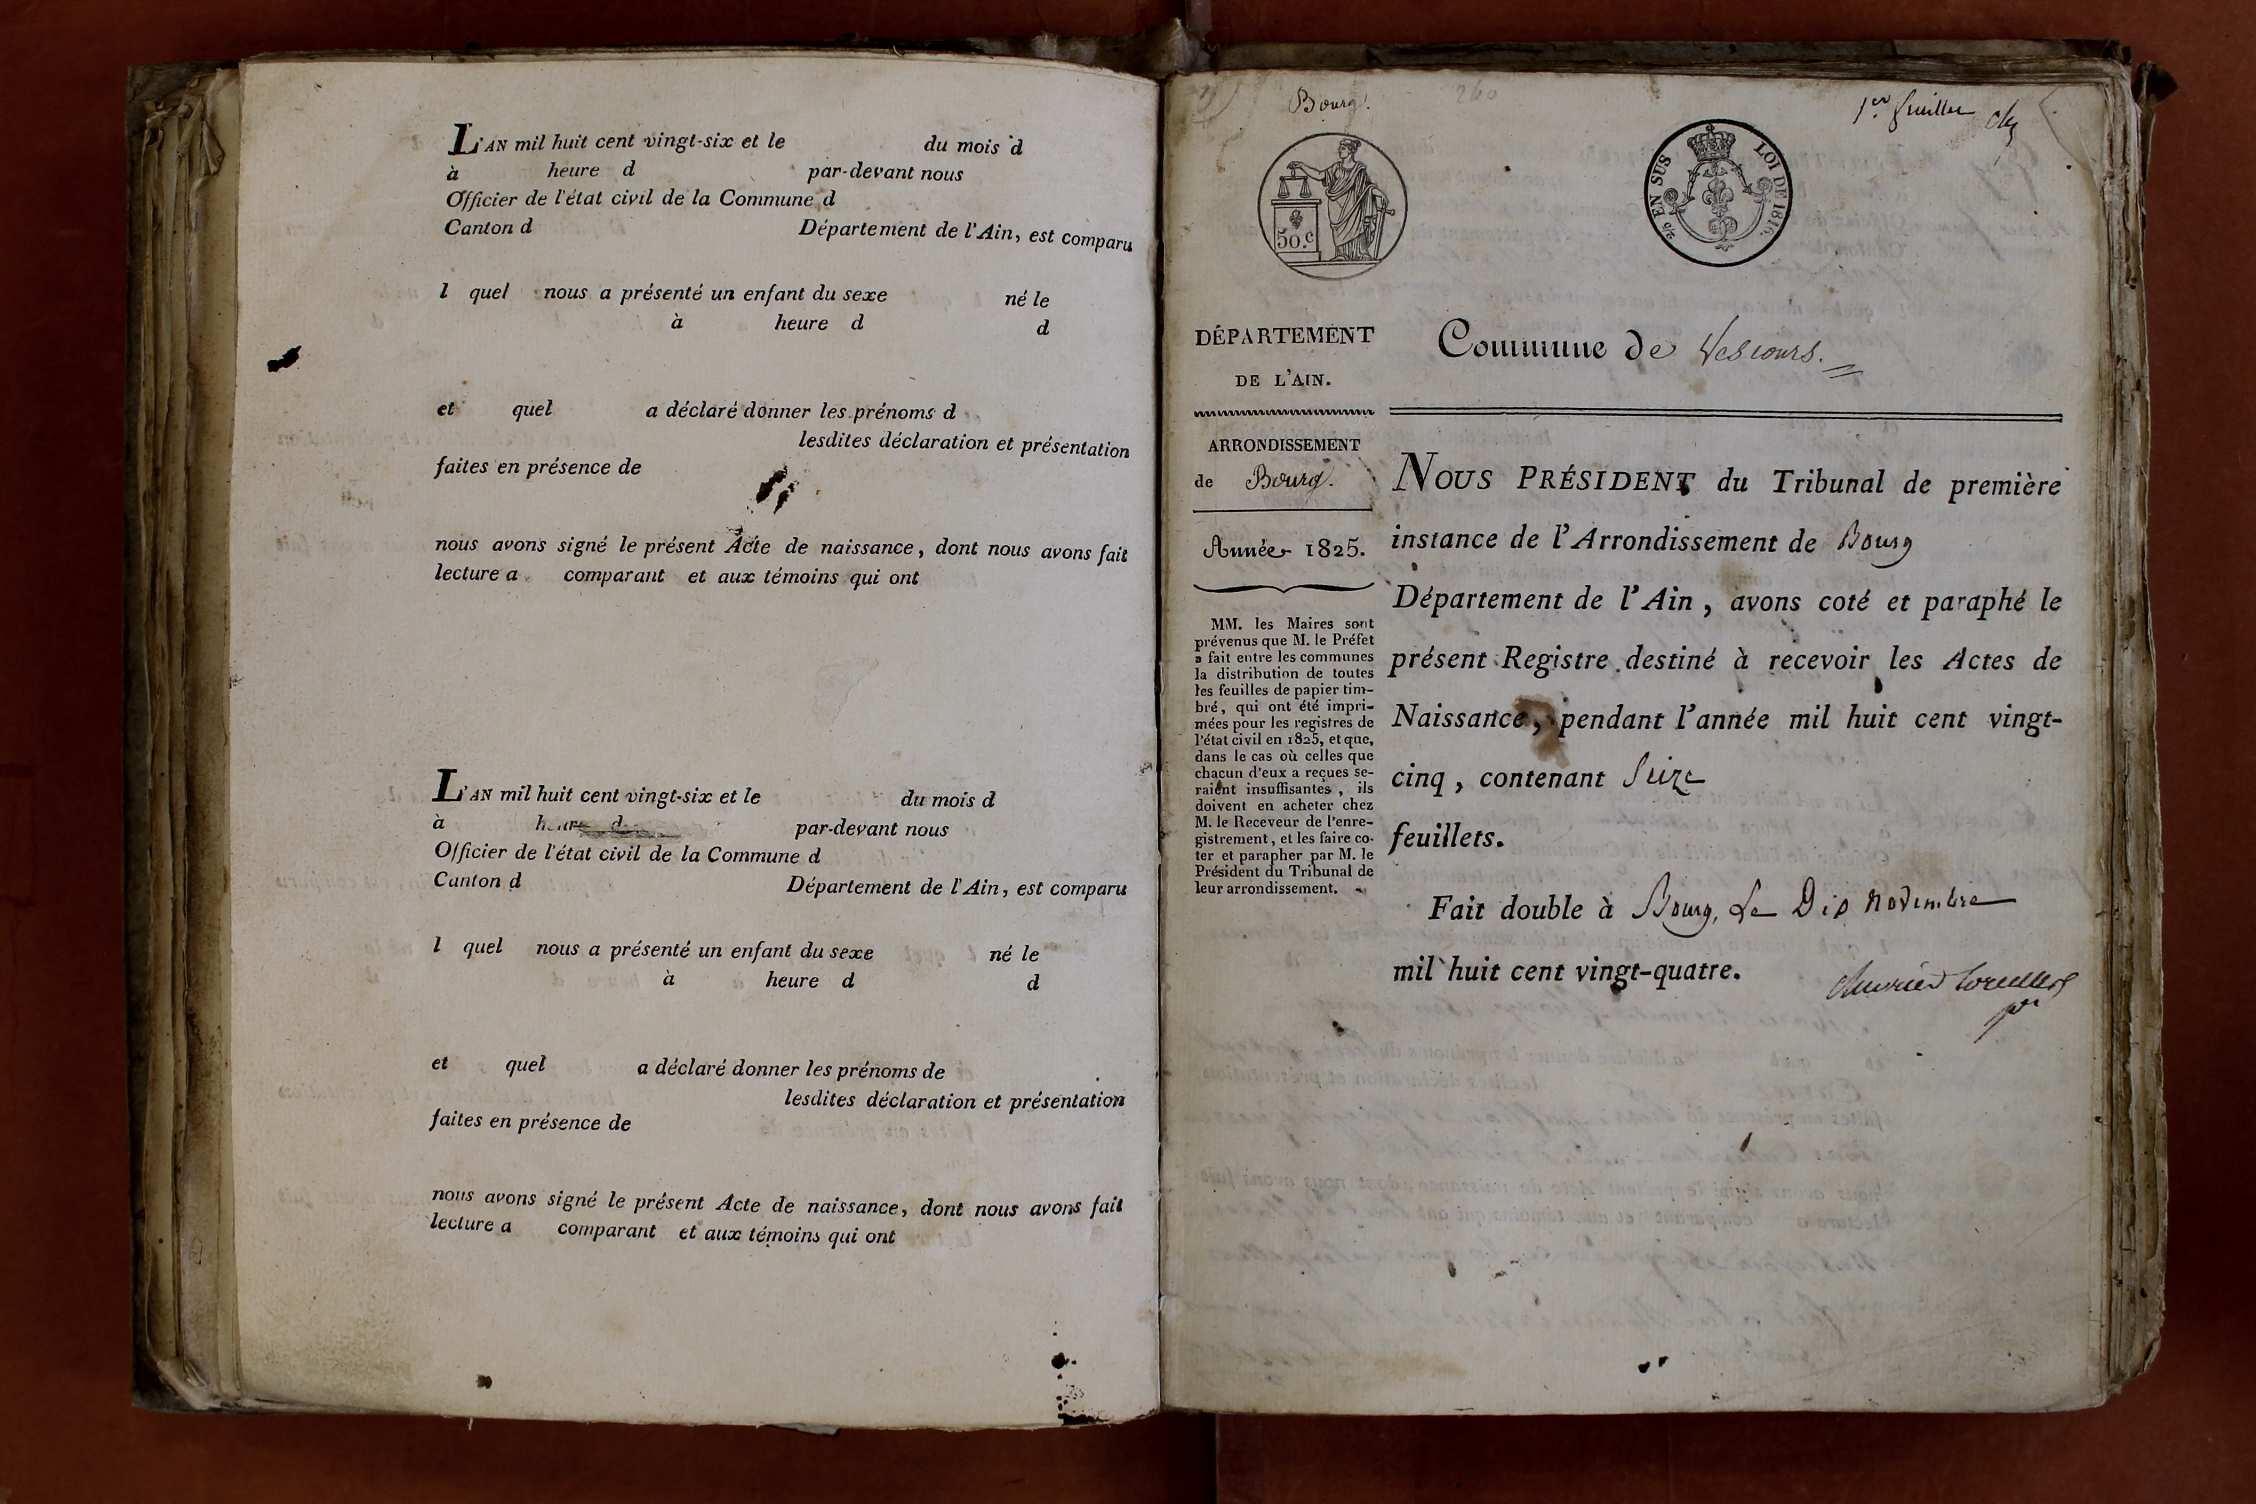 L'AN mil huit cent vingt-six et le du mois d
à heure d par-devant nous
Officier de l'état civil de la Commune d
Canton d Département de l'Ain, est comparu
l quel nous a présenté un enfant du sexe né le
à heure d d
et quel a déclaré donner les prénoms d
lesdites déclaration et présentation
faites en présence de
nous avons signé le présent Acte de naissance, dont nous avons fait
lecture a comparant et aux témoins qui ont
L'AN mil huit cent vingt-six et le du mois d
à heure d par-devant nous
Officier de l'état civil de la Commune d
Canton d Département de l'Ain, est comparu
l quel nous a présenté un enfant du sexe né le
à heure d d
et quel a déclaré donner les prénoms de
lesdites déclaration et présentation
faites en présence de
nous avons signé le présent Acte de naissance, dont nous avons fait
lecture a comparant et aux témoins qui ont
Bourg. 260 1er feuillet
50.c
EN SUS LOI DE 1816.
DÉPARTEMENT
DE L'AIN.
ARRONDISSEMENT
de Bourg.
Année 1825.
MM. les Maires sont
prévenus que M. le Préfet
a fait entre les communes
la distribution de toutes
les feuilles de papier tim-
bré, qui ont été impri-
mées pour les registres de
l'état civil en 1825, et que,
dans le cas où celles que
chacun d'eux a reçues se-
raient insuffisantes, ils
doivent en acheter chez
M. le Receveur de l'enre-
gistrement, et les faire co-
ter et parapher par M. le
Président du Tribunal de
leur arrondissement.
Commune de Vescours.
NOUS PRÉSIDENT du Tribunal de première
instance de l'Arrondissement de Bourg
Département de l'Ain, avons coté et paraphé le
présent Registre destiné à recevoir les Actes de
Naissance, pendant l'année mil huit cent vingt-
cinq, contenant Seize
feuillets.
Fait double à Bourg, Le Dix novembre
mil huit cent vingt-quatre.